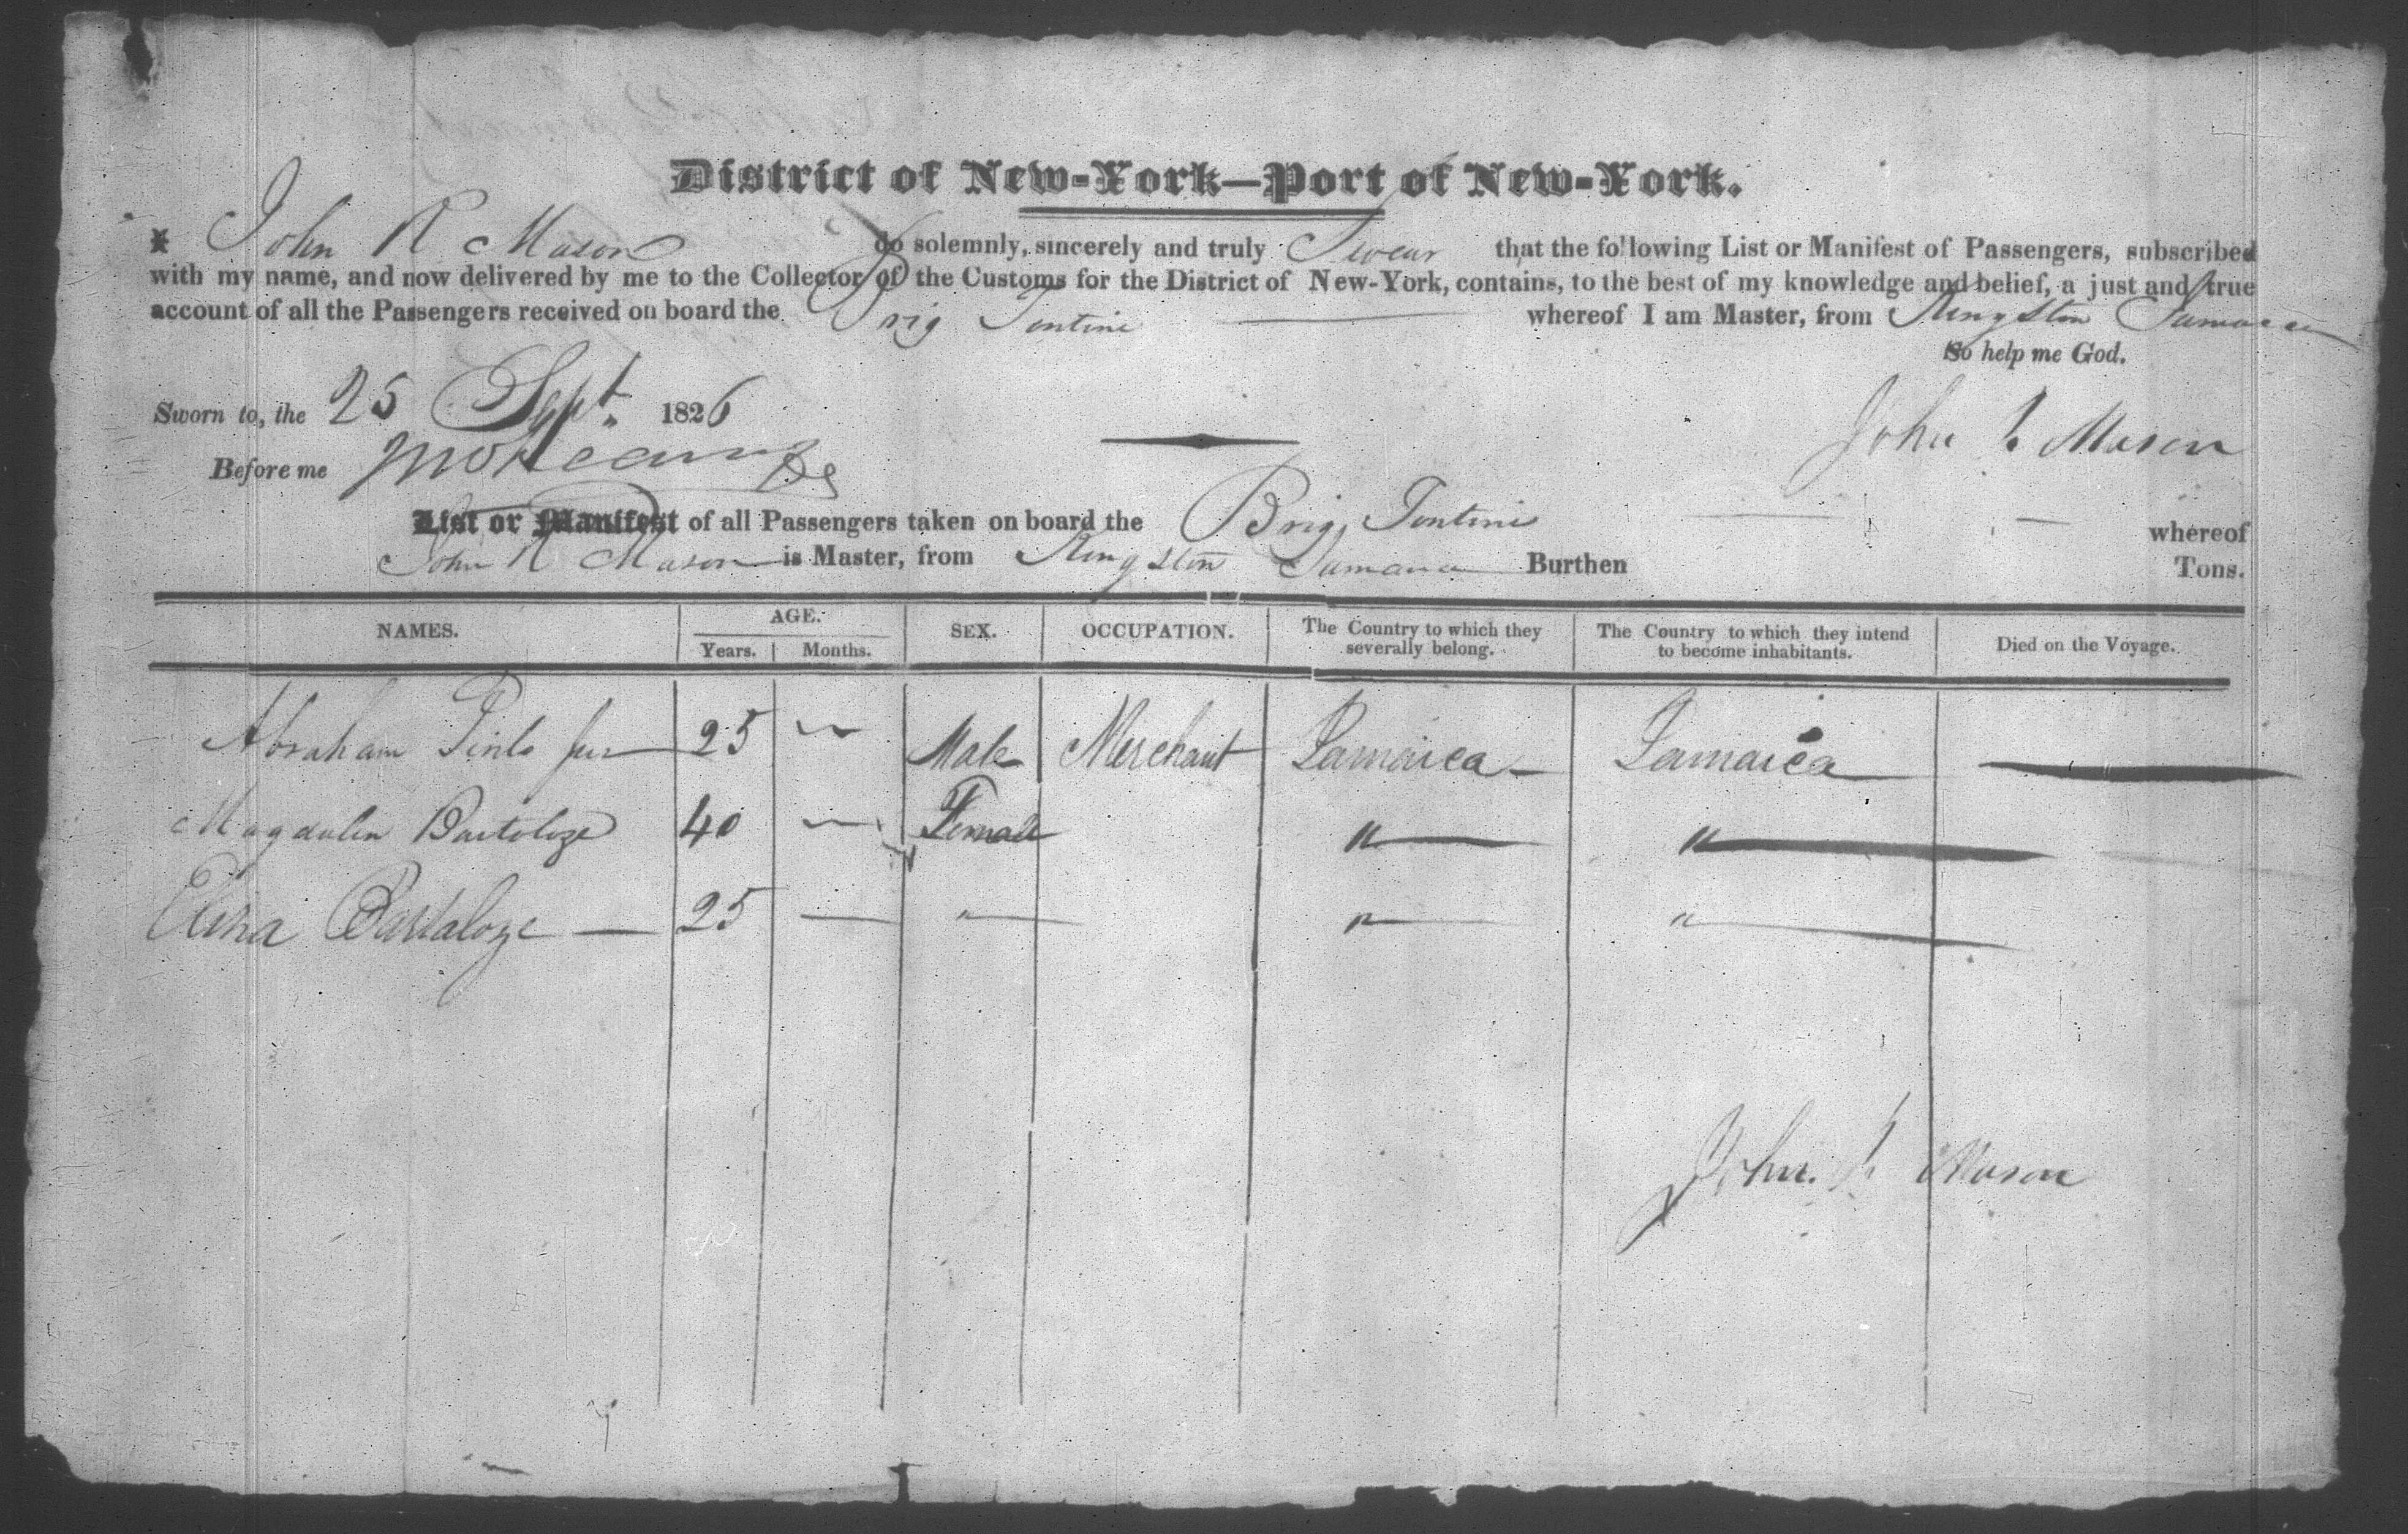 District of New-York—Port of New-York.
I John R Mason do solemnly, sincerely and truly Swear that the following List or Manifest of Passengers, subscribed
with my name, and now delivered by me to the Collector of the Customs for the District of New-York, contains, to the best of my knowledge and belief, a just and true
account of all the Passengers received on board the Brig Tontine whereof I am Master, from Kingston Jamaica
So help me God.
Sworn to, the 25 Sept. 1826
John R Mason
Before me
List or Manifest of all Passengers taken on board the Brig Tontine whereof
John R Mason is Master, from Kingston Jamaica Burthen Tons.
NAMES. AGE. Years. Months. SEX. OCCUPATION. The Country to which they severally belong. The Country to which they intend to become inhabitants. Died on the Voyage.
Abraham Pinto Jur 25 — Male Merchant Jamaica — Jamaica —
Magdalen Bartoloze 40 — Female " — " —
Eliza Bartaloze — 25 — " — " — " —
John R Mason